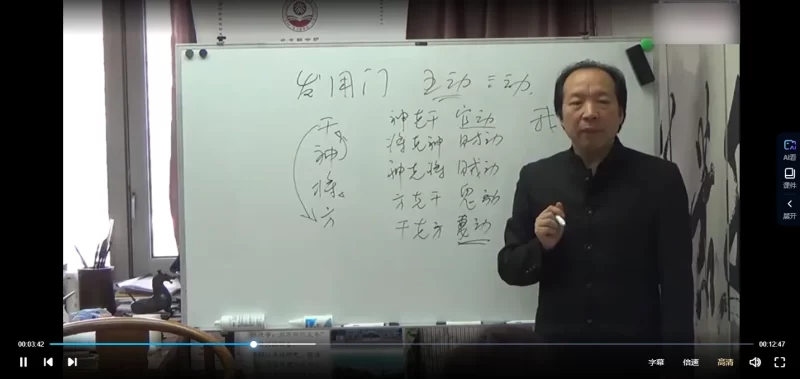 发用门 五动 三动
干
神
将
方
神克干 官动
将克神 动
神克将 财动
方克干 鬼动
干克方 妻动
我
AI看
课件
展开
00:03:42
00:12:47
字幕
倍速
高清